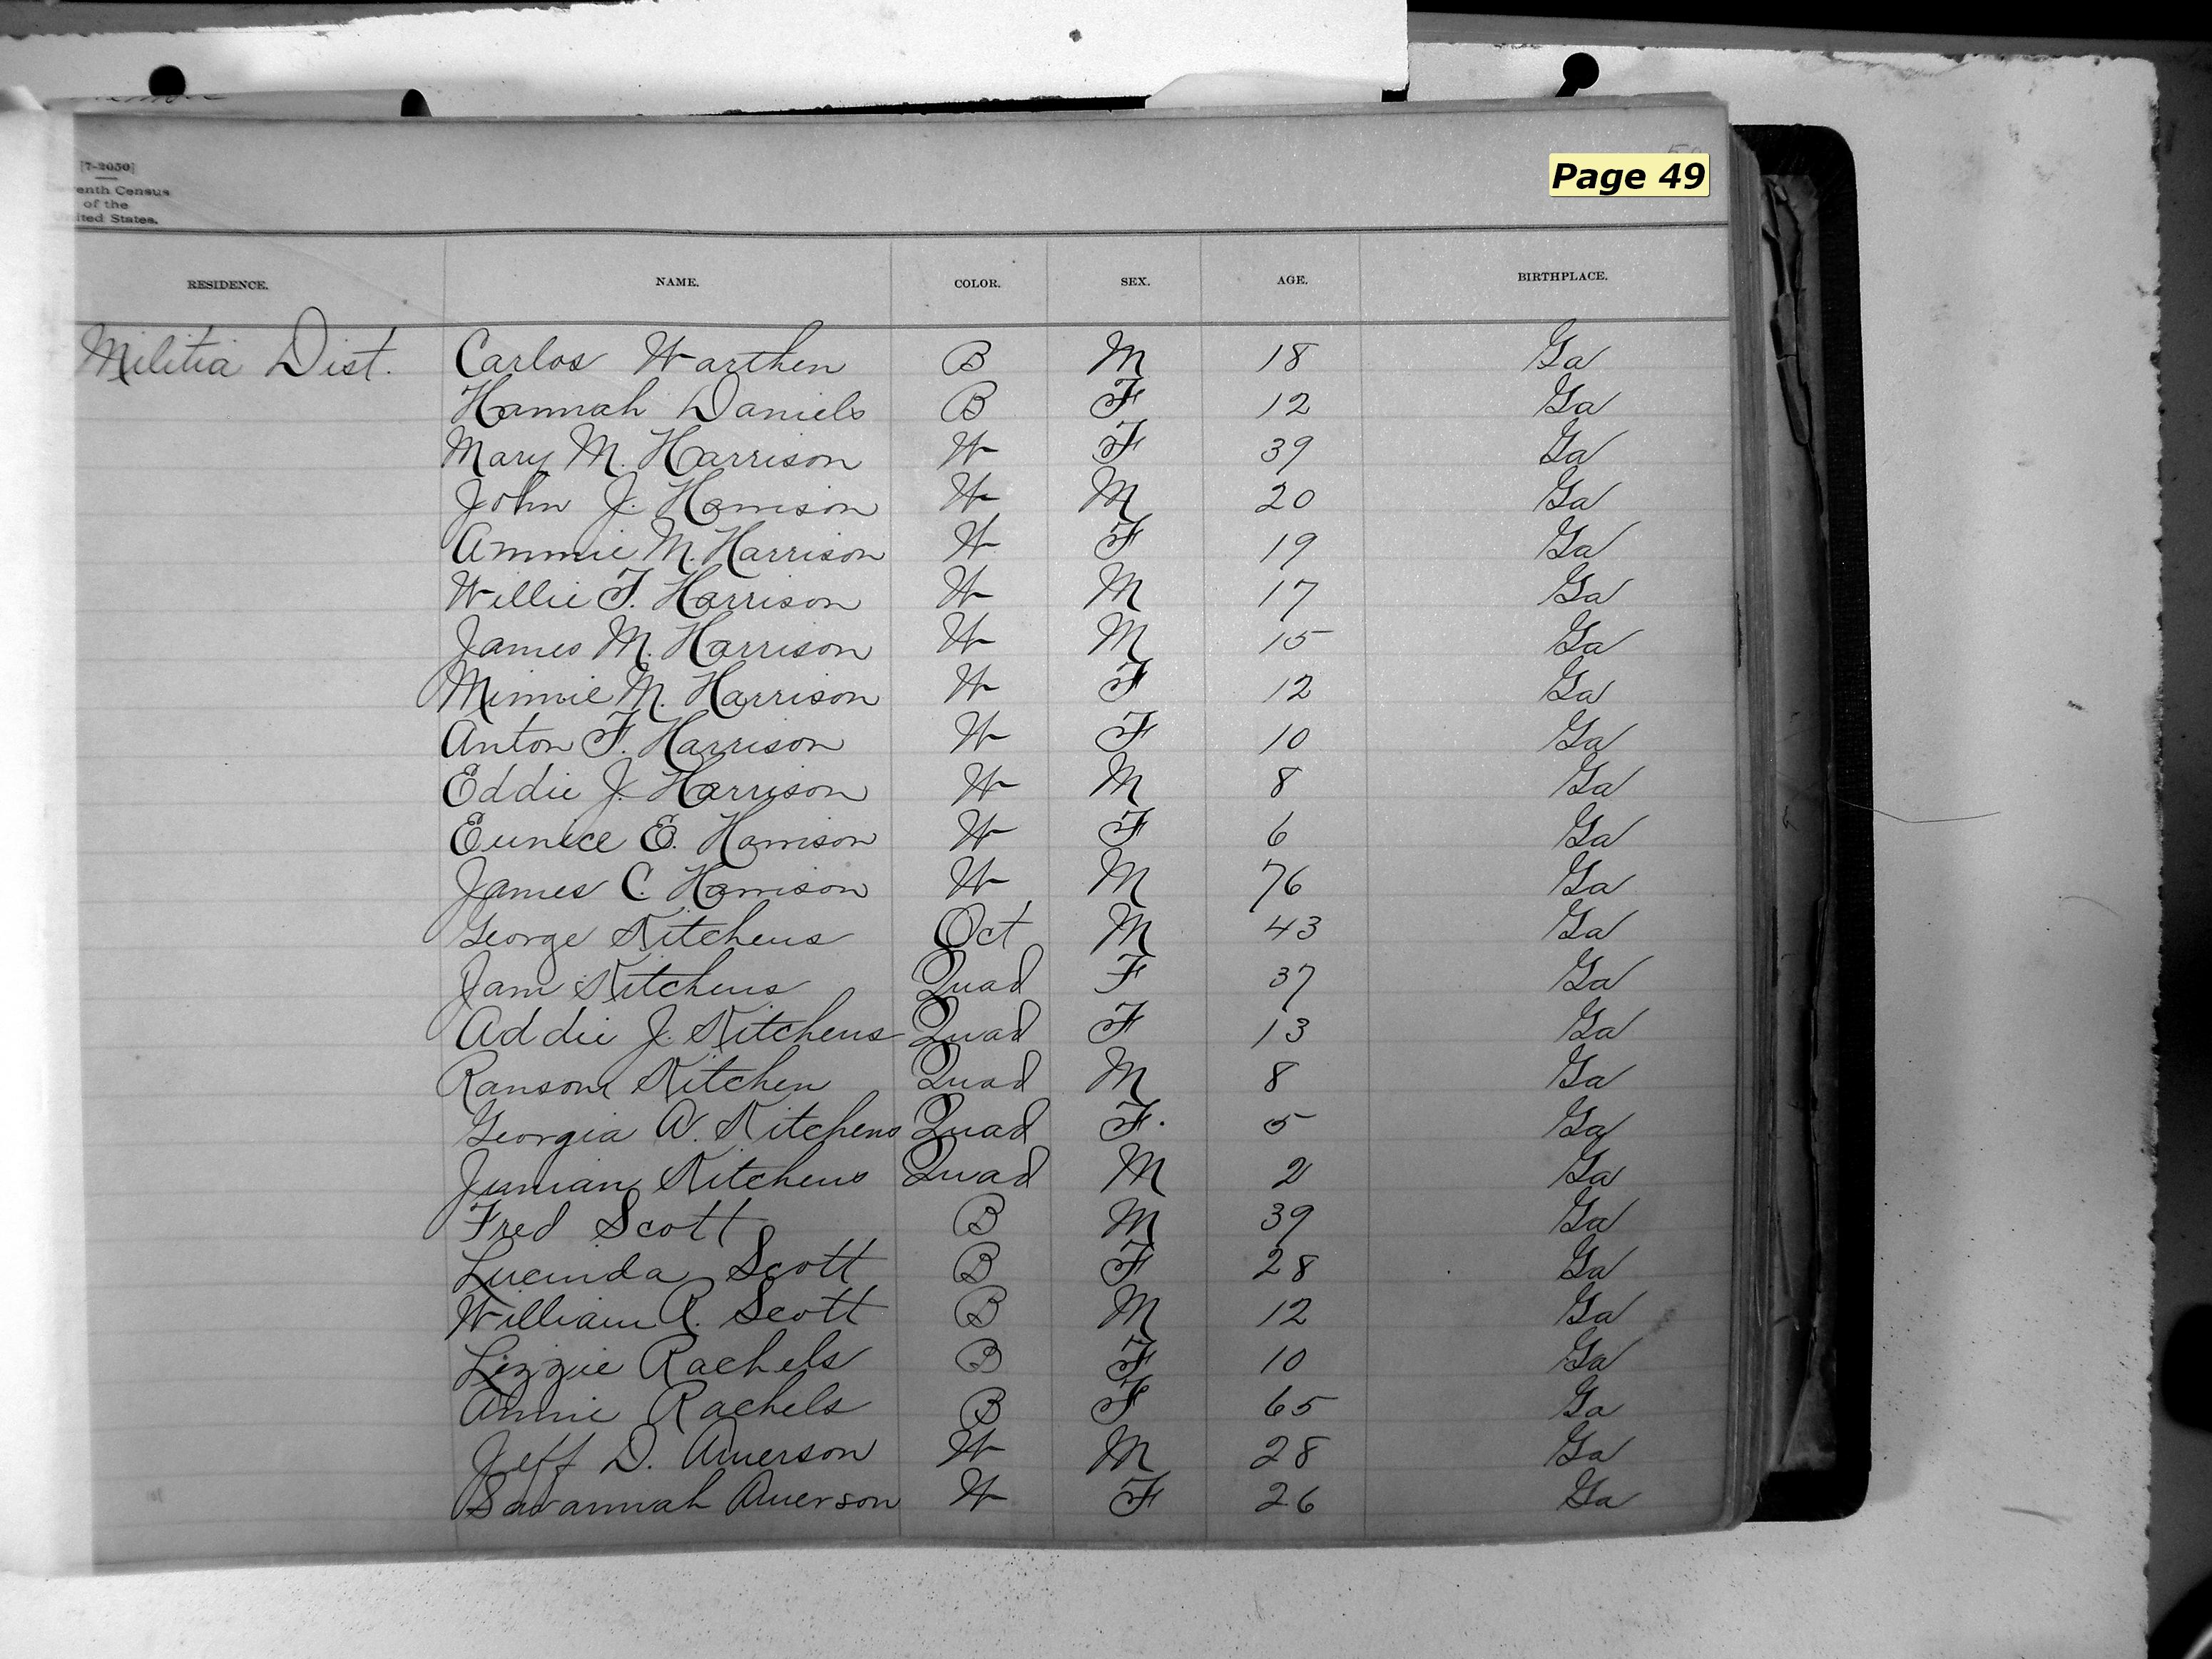 [7-2050]
enth Census
of the
ited States.
Page 49
RESIDENCE. NAME. COLOR. SEX. AGE. BIRTHPLACE.
Militia Dist. Carlos Warthen B M 18 Ga
Hannah Daniels B F 12 Ga
Mary M. Harrison W F 39 Ga
John J. Harrison W M 20 Ga
Ammie M. Harrison W F 19 Ga
Willie F. Harrison W M 17 Ga
James M. Harrison W M 15 Ga
Minnie M. Harrison W F 12 Ga
Anton F. Harrison W F 10 Ga
Eddie J. Harrison W M 8 Ga
Eunice E. Harrison W F 6 Ga
James C. Harrison W M 76 Ga
George Kitchens Oct M 43 Ga
Jam Kitchens Quad F 37 Ga
Addie J. Kitchens Quad F 13 Ga
Ransom Kitchen Quad M 8 Ga
Georgia A. Kitchens Quad F. 5 Ga
Junian Kitchens Quad M 2 Ga
Fred Scott B M 39 Ga
Lucinda Scott B F 28 Ga
William R. Scott B M 12 Ga
Lizzie Rachels B F 10 Ga
Annie Rachels B F 65 Ga
Jeff D. Amerson W M 28 Ga
Savannah Amerson W F 26 Ga